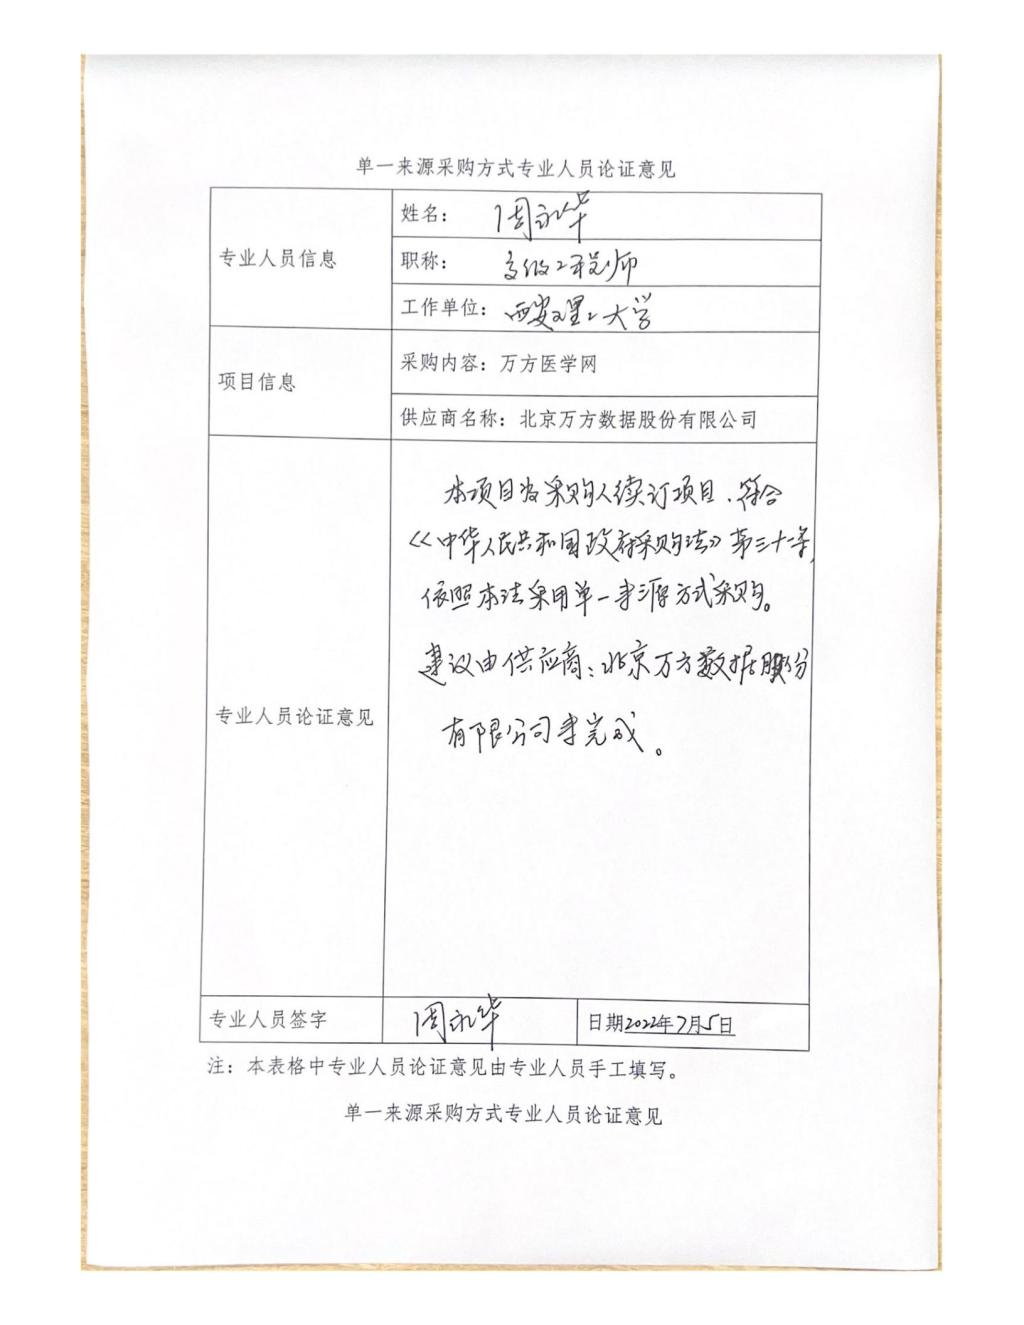 单一来源采购方式专业人员论证意见
专业人员信息
姓名： 周永华
职称： 高级工程师
工作单位： 西安理工大学
项目信息
采购内容：万方医学网
供应商名称：北京万方数据股份有限公司
专业人员论证意见
本项目为采购人续订项目，符合
《中华人民共和国政府采购法》第三十一条，
依照本法采用单一来源方式采购。
建议由供应商：北京万方数据股份
有限公司来完成。
专业人员签字
周永华
日期2022年7月5日
注：本表格中专业人员论证意见由专业人员手工填写。
单一来源采购方式专业人员论证意见